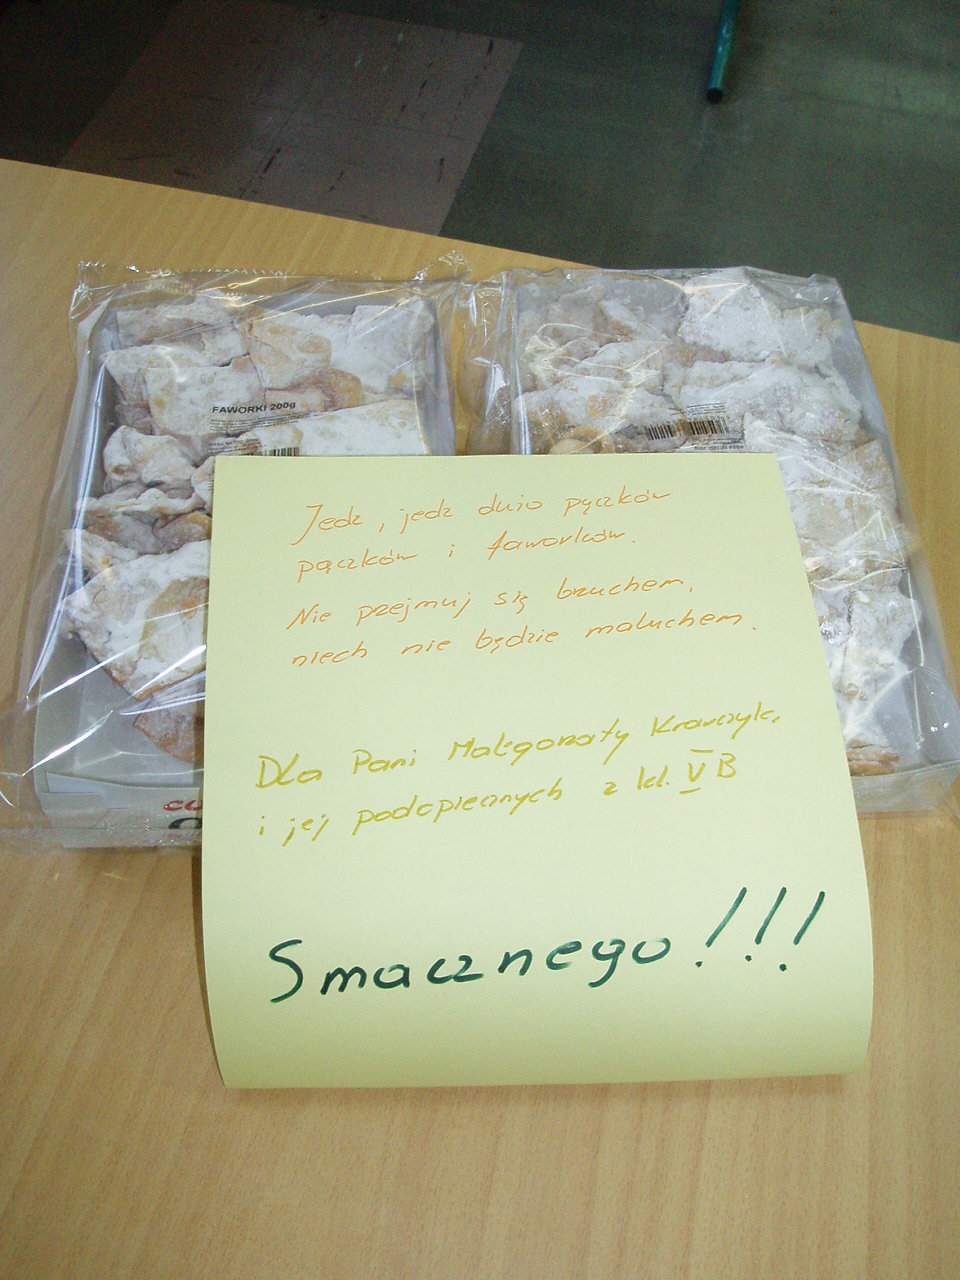 FAWORKI 200g
Jedz, jedz dużo pączków
pączków i faworków.
Nie przejmuj się brzuchem,
niech nie będzie maluchem.
Dla Pani Małgorzaty Krawczyk,
i jej podopiecznych z kl. V B
Smacznego!!!